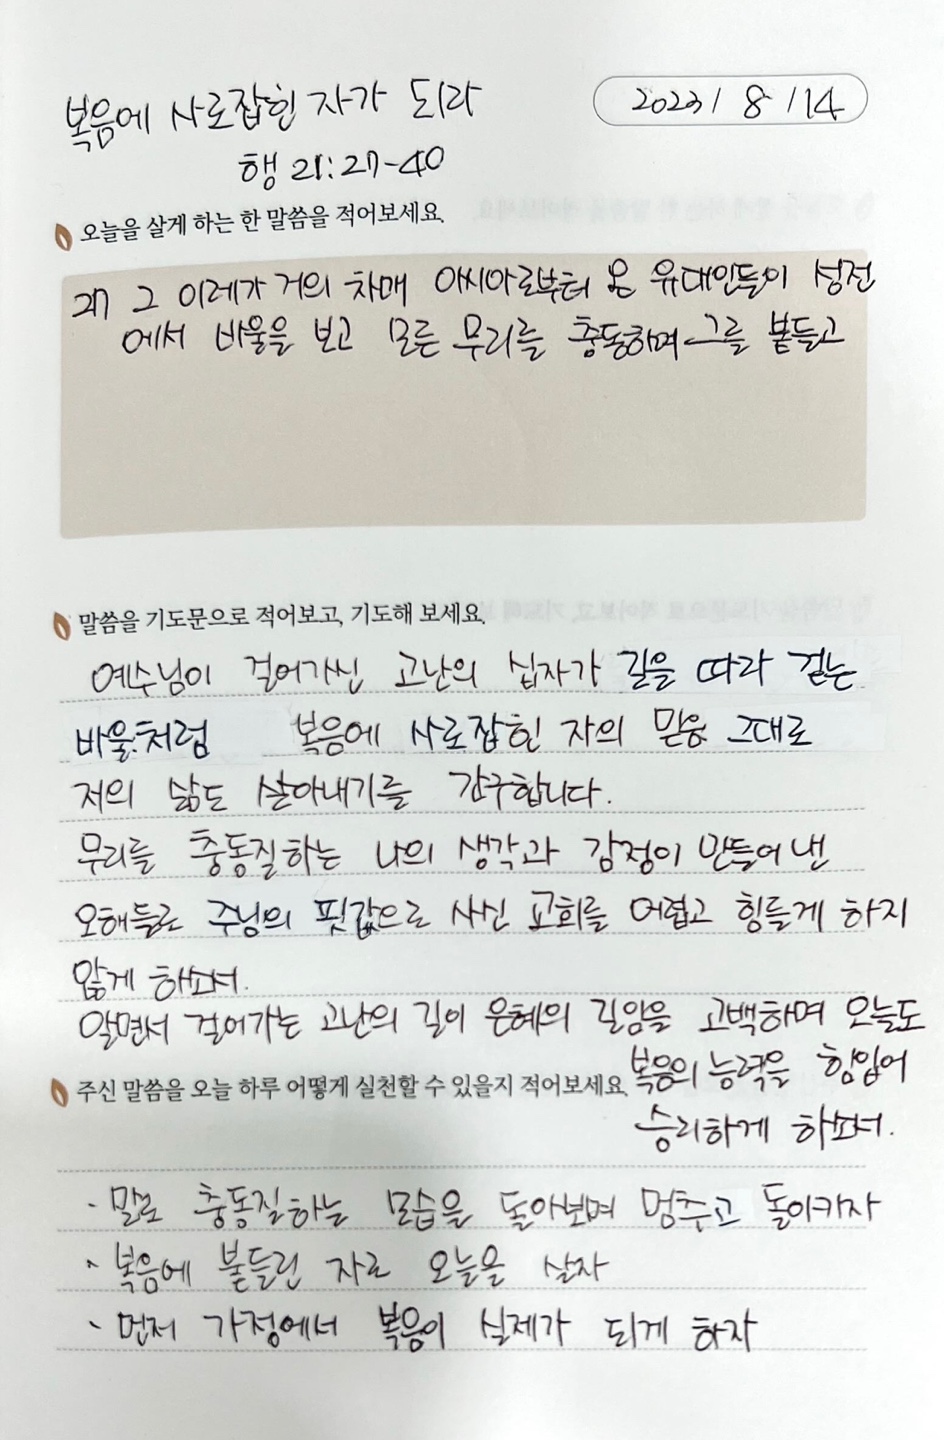 복음에 사로잡힌 자가 되라
2023/ 8 / 14
행 21:27-40
오늘을 살게 하는 한 말씀을 적어보세요.
27 그 이레가 거의 차매 아시아로부터 온 유대인들이 성전
에서 바울을 보고 모든 무리를 충동하며 그를 붙들고
말씀을 기도문으로 적어보고, 기도해 보세요.
예수님이 걸어가신 고난의 십자가 길을 따라 걷는
바울처럼 복음에 사로잡힌 자의 믿음 그대로
저의 삶도 살아내기를 간구합니다.
무리를 충동질하는 나의 생각과 감정이 만들어 낸
오해들로 주님의 핏값으로 사신 교회를 어렵고 힘들게 하지
않게 하소서.
알면서 걸어가는 고난의 길이 은혜의 길임을 고백하며 오늘도
복음의 능력을 힘입어
승리하게 하소서.
주신 말씀을 오늘 하루 어떻게 실천할 수 있을지 적어보세요.
· 말로 충동질하는 모습을 돌아보며 멈추고 돌이키자
· 복음에 붙들린 자로 오늘을 살자
· 먼저 가정에서 복음이 실제가 되게 하자